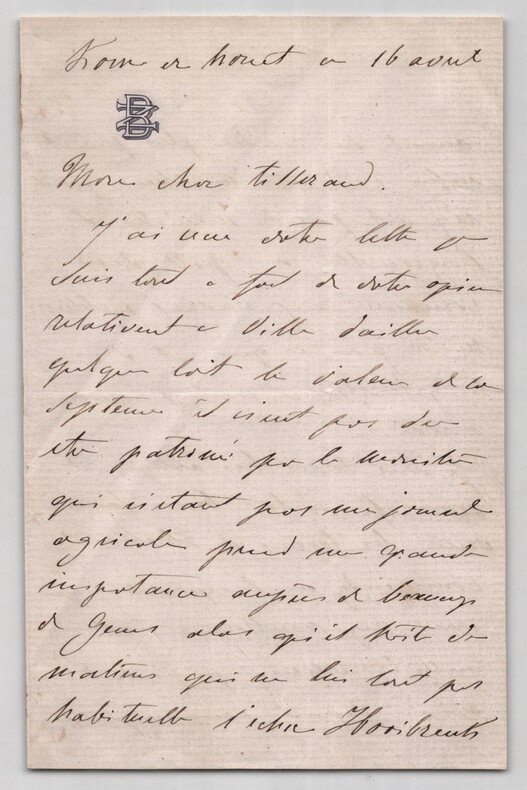 16 avril
BZ
Mon cher Tisserand.
J'ai reçu votre lettre je
suis tout a fait de votre opinion
relativement a Ville d'ailleurs
quelque soit la valeur de ce
système il n'eut pas du
etre patroné par le Moniteur
qui n'étant pas un journal
agricole prend une grande
importance auprès de beaucoup
de gens alors qu'il traite de
matières qui ne lui sont pas
habituelles l'echec Hooibrenk